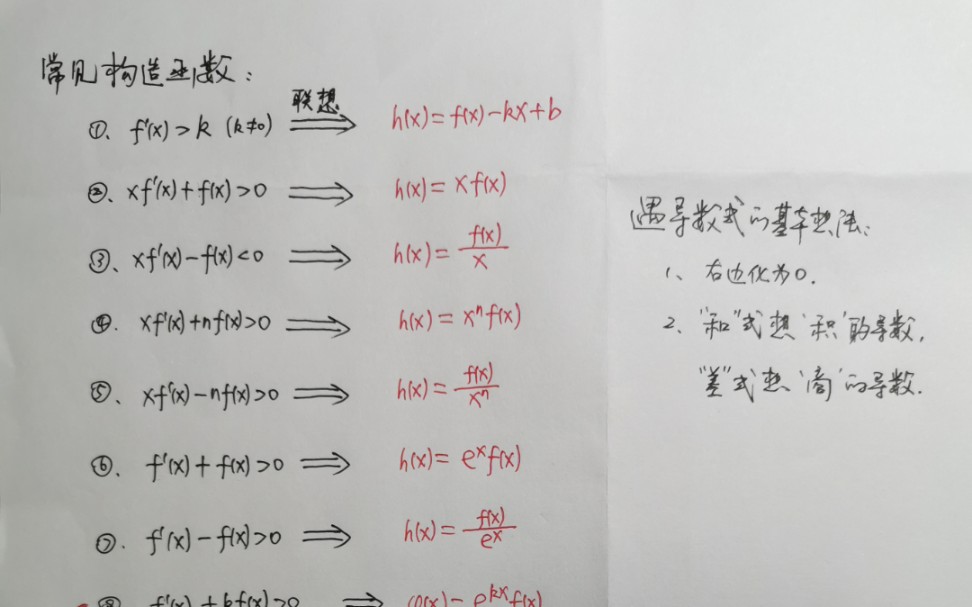 常见构造函数:
联想
①. f'(x)>k (k≠0) ⟹ h(x)=f(x)-kx+b
②. xf'(x)+f(x)>0 ⟹ h(x)=xf(x)
③. xf'(x)-f(x)<0 ⟹ h(x)=f(x)/x
④. xf'(x)+nf(x)>0 ⟹ h(x)=xⁿf(x)
⑤. xf'(x)-nf(x)>0 ⟹ h(x)=f(x)/xⁿ
⑥. f'(x)+f(x)>0 ⟹ h(x)=eˣf(x)
⑦. f'(x)-f(x)>0 ⟹ h(x)=f(x)/eˣ
⑧. f'(x)+kf(x)>0 ⟹ (x)=eᵏˣf(x)
遇导数式的基本想法:
1、右边化为0.
2、"和"式想'积'的导数,
"差"式想'商'的导数.